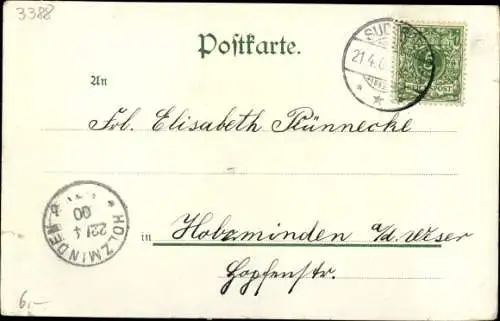 3388
Postkarte.
SUD
21.4.0
POST
An
Frl. Elisabeth Künnecke
HOLZMINDEN
22/4
00
in Holzminden a/d. Weser
Hopfenstr.
6,-